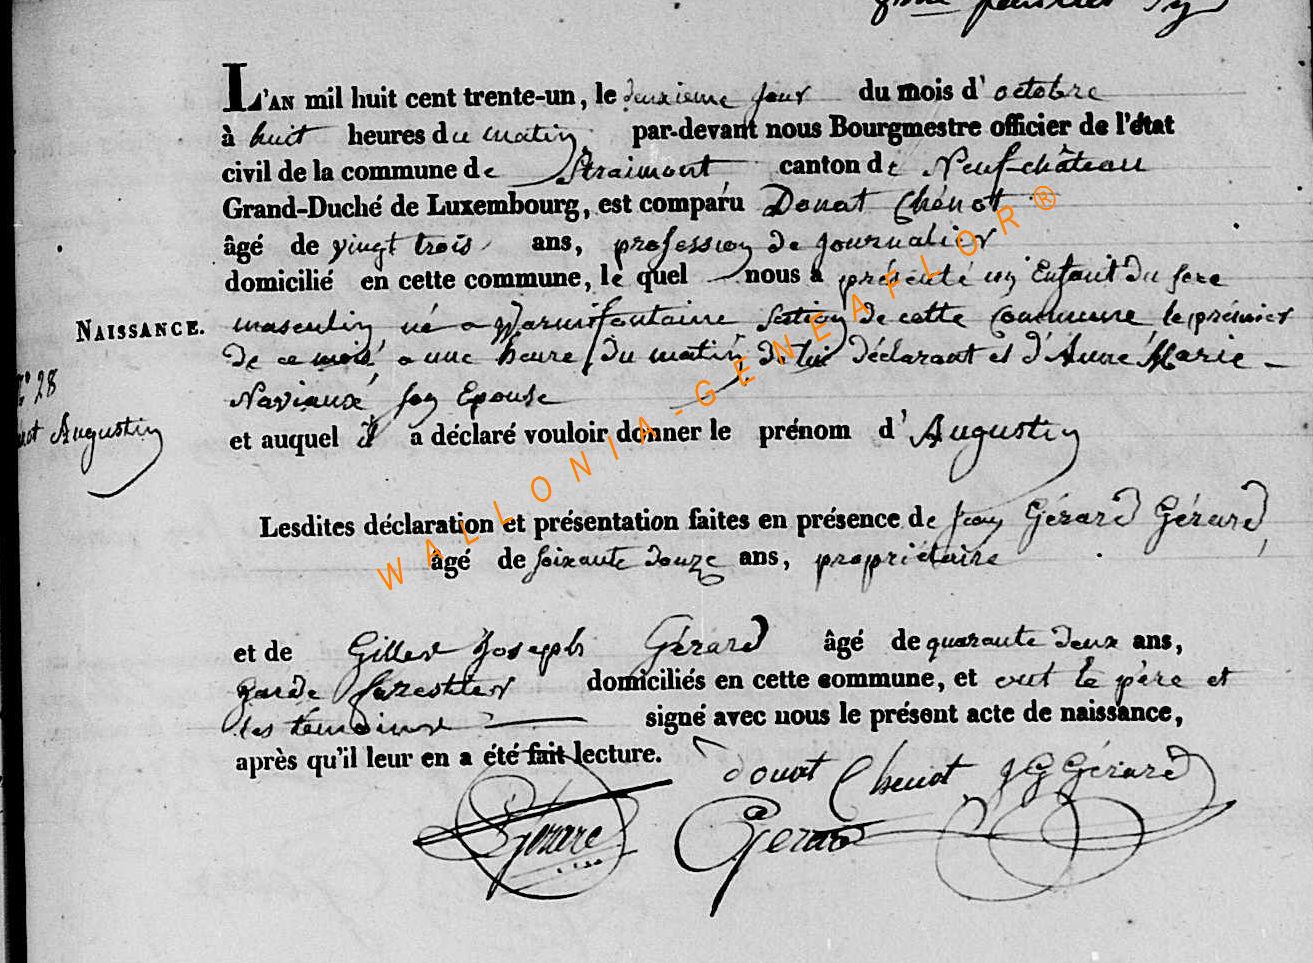 L'AN mil huit cent trente-un, le deuxieme jour du mois d'octobre
à huit heures du matin, par-devant nous Bourgmestre officier de l'état
civil de la commune de Straimont canton de Neufchâteau
Grand-Duché de Luxembourg, est comparu Donat Chénot
âgé de vingt trois ans, profession de journalier
domicilié en cette commune, le quel nous a présenté un Enfant du sexe
NAISSANCE. masculin né a Warmifontaine section de cette commune le prémier
de ce mois a une heure du matin, de lui déclarant et d'Anne Marie
N° 28
Naviaux son Epouse
et auquel il a déclaré vouloir donner le prénom d'Augustin
Augustin
Lesdites déclaration et présentation faites en présence de Jean Gérard Gérard,
âgé de soixante douze ans, propriétaire
et de Gilles Joseph Gérard âgé de quarante deux ans,
garde forestier domiciliés en cette commune, et ont le père et
les témoins signé avec nous le présent acte de naissance,
après qu'il leur en a été fait lecture.
donat Chenot JG Gérard
Gerard Gerard
WALLONIA-GENEAFLOR®